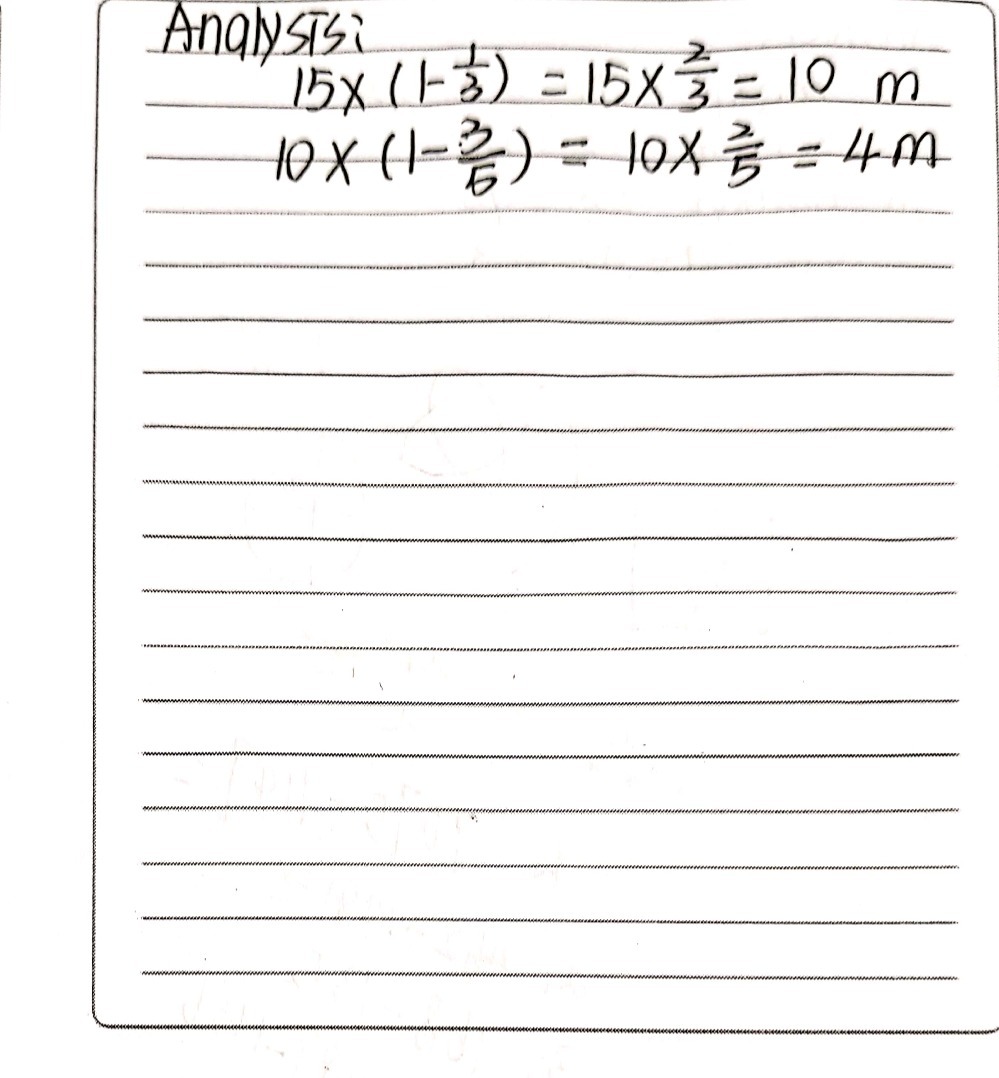 Analysis:
15×(1-1/3) = 15×2/3 = 10 m
10×(1-3/5) = 10×2/5 = 4m